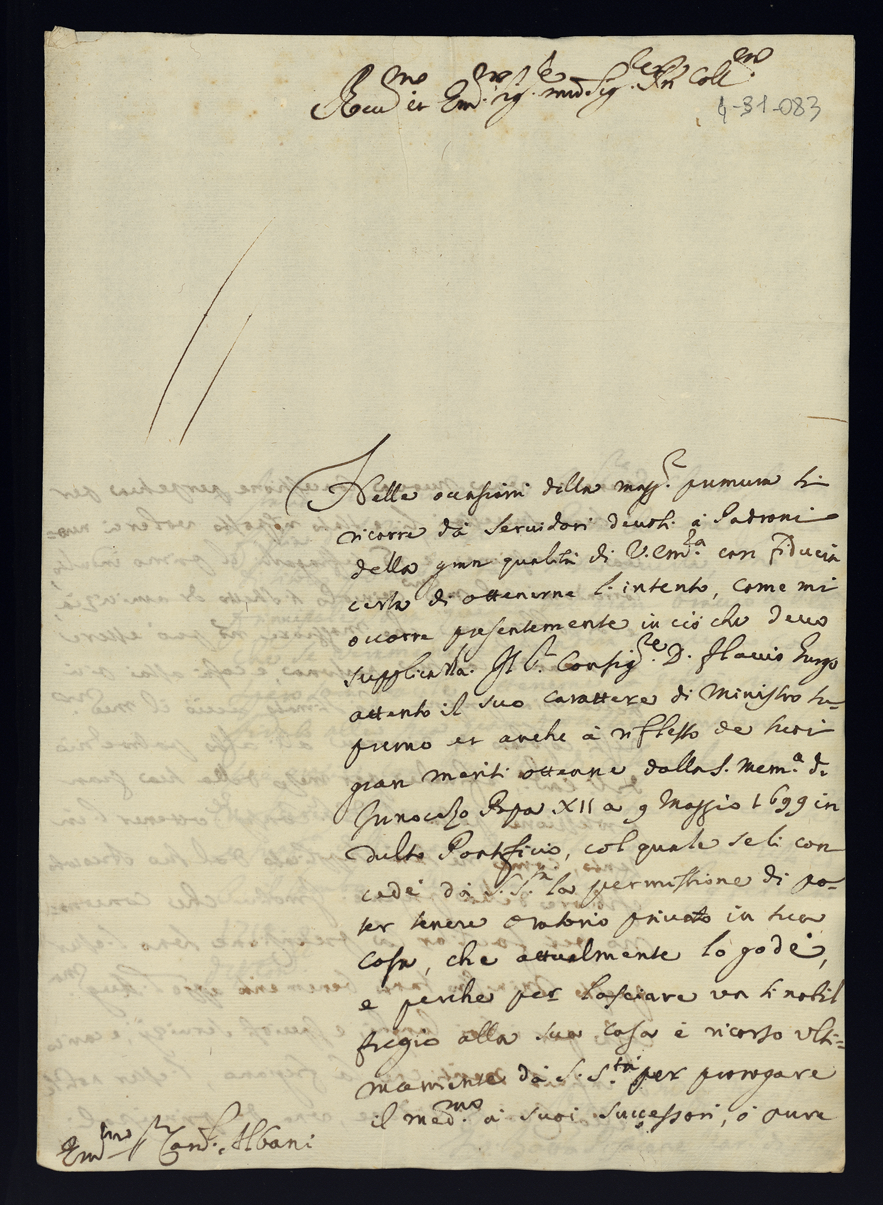 Rev.mo et Em.mo Sig.re mio Sig.re P.ron Coll.mo
4-31-083
Nelle occasioni della magg.re premura si
ricorre dà Servidori devoti à Padroni
della gran qualità di V. Em.za con fiducia
certa di ottenerne l'intento, come mi
occorre presentemente in ciò che devo
supplicarla. Il S.r Consig.re D. Flavio Gurgo
attento il suo carattere di Ministro su-
premo et anche à riflesso de suoi
gran meriti ottenne dalla S. Mem.a di
Innocenzo Papa XII a 9 Maggio 1699 in
dulto Pontificio, col quale se li con
cedè dà S. S.tà la permissione di po-
ter tenere oratorio privato in sua
Casa, che attualmente lo gode,
e perche per lasciare un sì nobil
fregio alla sua casa è ricorso ulti=
mamente dà S. S.tà per prorogare
il med.mo à suoi successori, ò pure
Em.mo S.r Card.l Albani